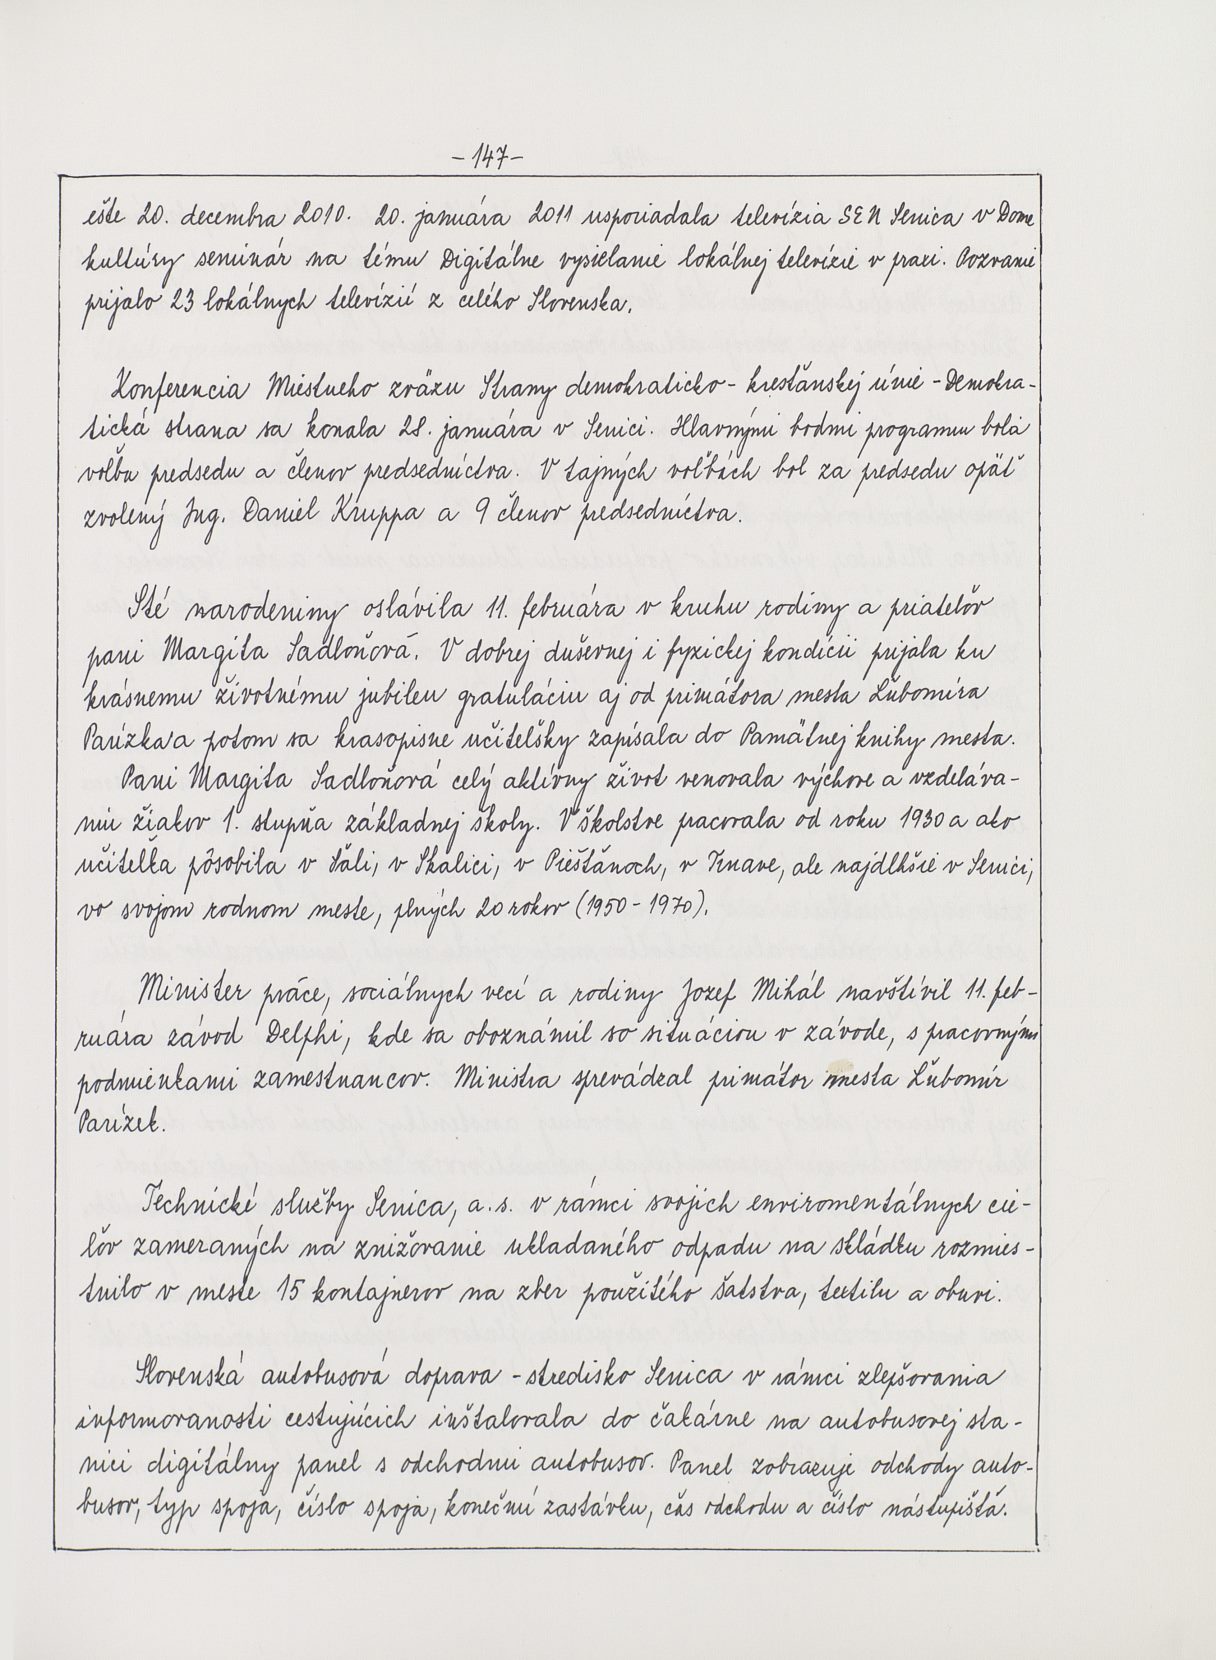 - 147 -
ešte 20. decembra 2010. 20. januára 2011 usporiadala televízia SEN Senica v Dome
kultúry seminár na tému Digitálne vysielanie lokálnej televízie v praxi. Pozvanie
prijalo 23 lokálnych televízií z celého Slovenska.
Konferencia Miestneho zväzu Strany demokraticko - kresťanskej únie - Demokra-
tická strana sa konala 28. januára v Senici. Hlavnými bodmi programu bola
voľba predsedu a členov predsedníctva. V tajných voľbách bol za predsedu opäť
zvolený Ing. Daniel Kruppa a 9 členov predsedníctva.
Sté narodeniny oslávila 11. februára v kruhu rodiny a priateľov
pani Margita Sadloňová. V dobrej duševnej i fyzickej kondícii prijala ku
krásnemu životnému jubileu gratuláciu aj od primátora mesta Ľubomíra
Parízka a potom sa krasopisne učiteľsky zapísala do Pamätnej knihy mesta.
Pani Margita Sadloňová celý aktívny život venovala výchove a vzdeláva-
niu žiakov 1. stupňa základnej školy. V školstve pracovala od roku 1930 a ako
učiteľka pôsobila v Šali, v Skalici, v Piešťanoch, v Trnave, ale najdlhšie v Senici,
vo svojom rodnom meste, plných 20 rokov (1950 - 1970).
Minister práce, sociálnych vecí a rodiny Jozef Mihál navštívil 11. feb-
ruára závod Delphi, kde sa oboznámil so situáciou v závode, s pracovnými
podmienkami zamestnancov. Ministra sprevádzal primátor mesta Ľubomír
Parízek.
Technické služby Senica, a.s. v rámci svojich enviromentálnych cie-
ľov zameraných na znižovanie ukladaného odpadu na skládku rozmies-
tnilo v meste 15 kontajnerov na zber použitého šatstva, textilu a obuvi.
Slovenská autobusová doprava - stredisko Senica v rámci zlepšovania
informovanosti cestujúcich inštalovala do čakárne na autobusovej sta-
nici digitálny panel s odchodmi autobusov. Panel zobrazuje odchody auto-
busov, typ spoja, číslo spoja, konečnú zastávku, čas odchodu a číslo nástupišťa.